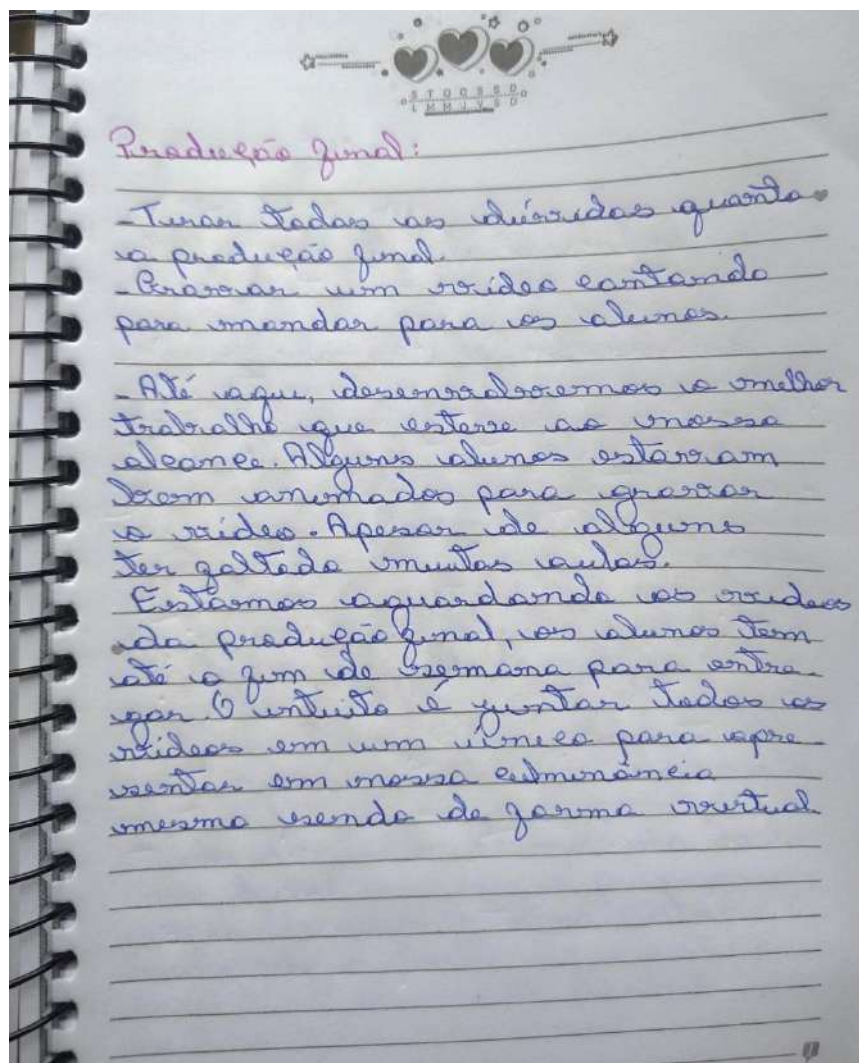 S T Q Q S S D
L M M J V S D
Produção final:
- Tirar todas as dúvidas quanto
a produção final.
- Gravar um vídeo cantando
para mandar para os alunos.
- Até aqui, desenvolvemos o melhor
trabalho que esteve ao nosso
alcance. Alguns alunos estavam
bem animados para gravar
o vídeo. Apesar de alguns
ter faltado muitas aulas.
Estamos aguardando os vídeos
da produção final, os alunos tem
até o fim de semana para entre-
gar. O intuito é juntar todos os
vídeos em um único para apre-
sentar em nossa culminância
mesmo sendo de forma virtual